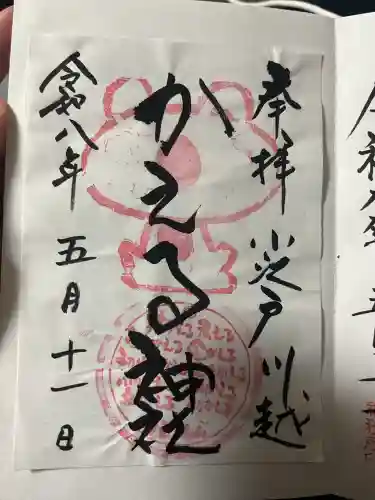 奉拝 小江戸川越
かえる神社
令和八年 五月十一日